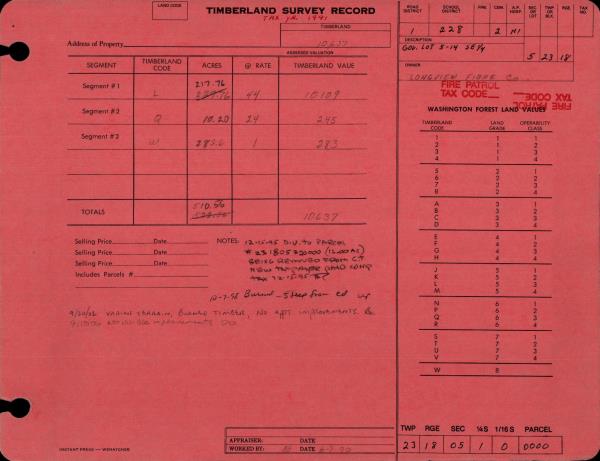 LAND CODE
TIMBERLAND SURVEY RECORD
TAX YR. 1991
TIMBERLAND
Address of Property 10637
ASSESSED VALUATION
SEGMENT TIMBERLAND CODE ACRES @ RATE TIMBERLAND VALUE
217.76
Segment #1 L 44 10109
Segment #2 Q 10.20 24 245
Segment #3 W 282.6 1 283
510.56
TOTALS 10637
Selling Price Date
Selling Price Date
Selling Price Date
Includes Parcels #
NOTES: 12-15-95 DIV. TO PARCEL
# 231805320000 (12.00 AC)
BEING REMOVED FROM C.F.
NEW TAXPAYER ROAD COMP
TAX 12-15-95
10-7-98 Burned - steep from rd
9/20/02 VARIED TERRAIN, BURNED TIMBER, NO APPT IMPROVEMENTS
no visible improvements
INSTANT PRESS — WENATCHEE
APPRAISER: DATE
WORKED BY: DATE
ROAD DISTRICT SCHOOL DISTRICT FIRE CEM. A.P. HOSP. SEC OR LOT TWP OR BLK. RGE TAX NO.
1 228 2 N1
DESCRIPTION
GOV. LOT 5-14 SE 1/4
5 23 18
OWNER
LONGVIEW FIBRE CO.
FIRE PATROL
TAX CODE
FIRE PATROL
TAX CODE
WASHINGTON FOREST LAND VALUES
TIMBERLAND CODE LAND GRADE OPERABILITY CLASS
1 1 1
2 1 2
3 1 3
4 1 4
5 2 1
6 2 2
7 2 3
8 2 4
A 3 1
B 3 2
C 3 3
D 3 4
E 4 1
F 4 2
G 4 3
H 4 4
J 5 1
K 5 2
L 5 3
M 5 4
N 6 1
P 6 2
Q 6 3
R 6 4
S 7 1
T 7 2
U 7 3
V 7 4
W 8
TWP RGE SEC ¼S 1/16S PARCEL
23 18 05 1 0 0000